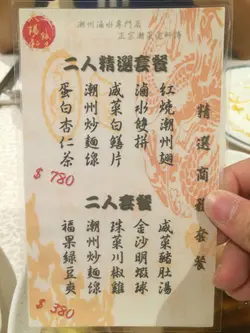 潮州滷水專門店
正宗潮菜老師傅
精選商務套餐
二人精選套餐
紅燒潮州翅
滷水雙拼
咸菜白鱔片
潮州炒麵線
蛋白杏仁茶
$ 780
二人套餐
咸菜豬肚湯
金沙明蝦球
珠菜川椒雞
潮州炒麵線
福果綠豆爽
$ 380